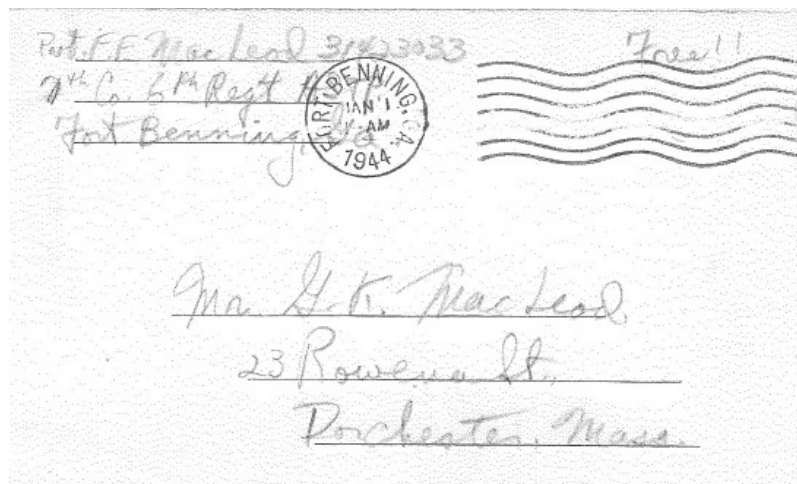 Pvt. F.F. MacLeod 31423033
Free!!
7th Co. 6th Regt
Fort Benning, Ga
FORT BENNING, GA.
JAN 1
AM
1944
Mr. G.K. MacLeod
23 Rowena St.
Dorchester, Mass.